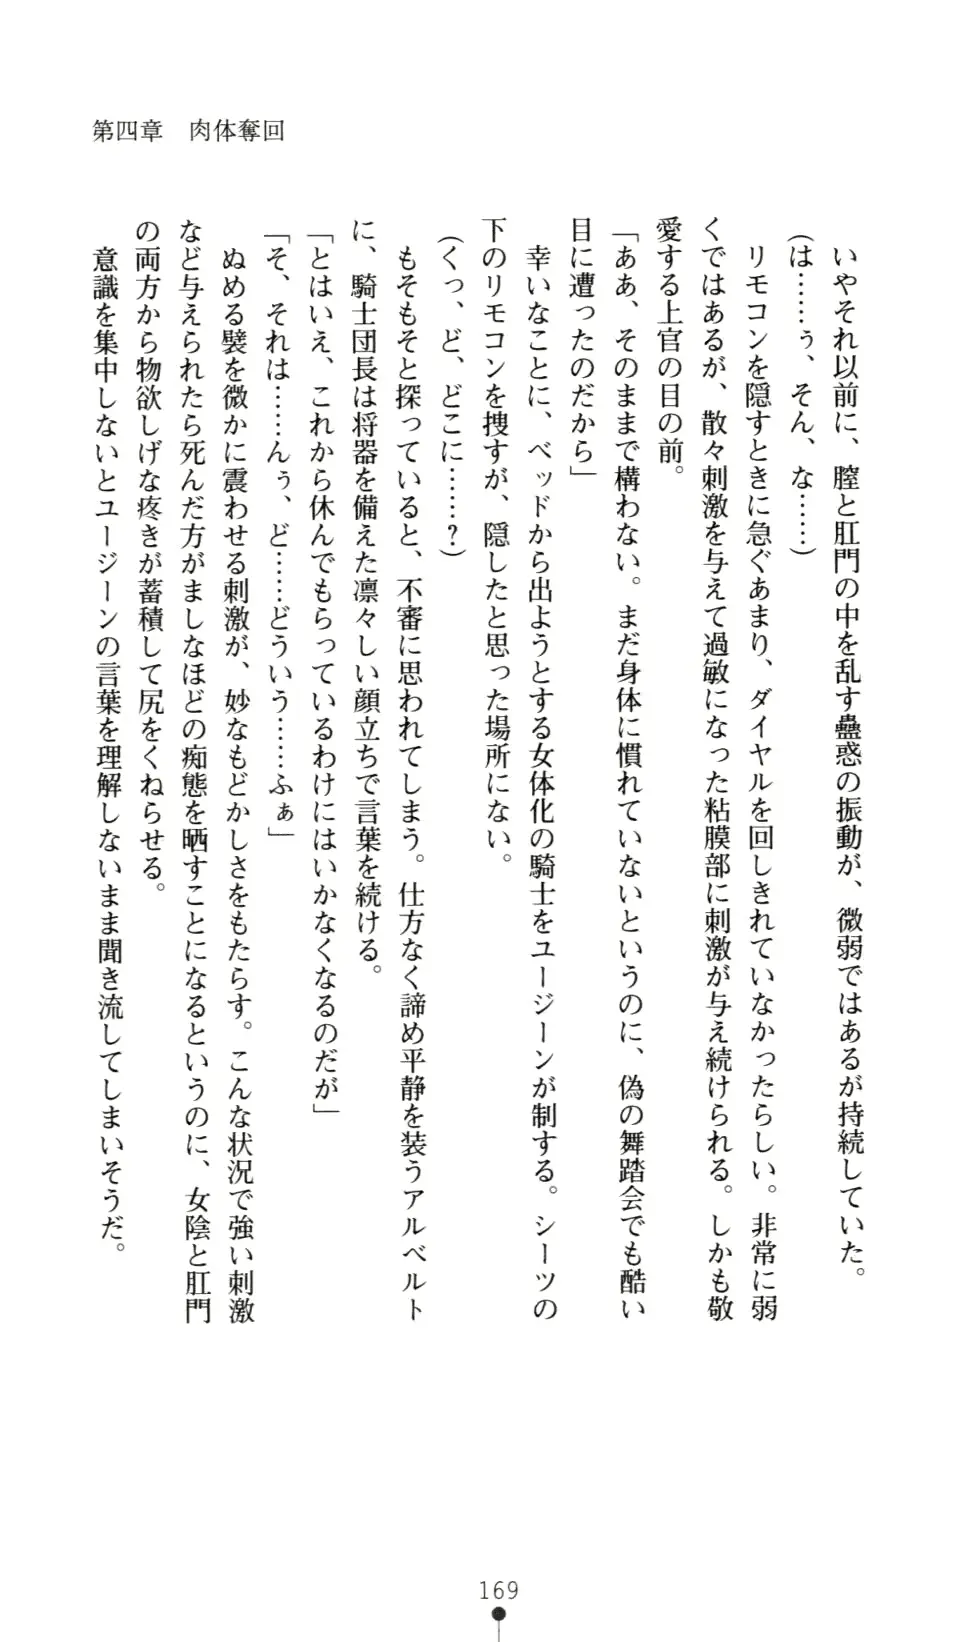 第四章　肉体奪回
いやそれ以前に、膣と肛門の中を乱す蠱惑の振動が、微弱ではあるが持続していた。
(は……ぅ、そん、な……)
リモコンを隠すときに急ぐあまり、ダイヤルを回しきれていなかったらしい。非常に弱
くではあるが、散々刺激を与えて過敏になった粘膜部に刺激が与え続けられる。しかも敬
愛する上官の目の前。
「ああ、そのままで構わない。まだ身体に慣れていないというのに、偽の舞踏会でも酷い
目に遭ったのだから」
幸いなことに、ベッドから出ようとする女体化の騎士をユージーンが制する。シーツの
下のリモコンを捜すが、隠したと思った場所にない。
(くっ、ど、どこに……？)
もそもそと探っていると、不審に思われてしまう。仕方なく諦め平静を装うアルベルト
に、騎士団長は将器を備えた凛々しい顔立ちで言葉を続ける。
「とはいえ、これから休んでもらっているわけにはいかなくなるのだが」
「そ、それは……んぅ、ど……どういう……ふぁ」
ぬめる襞を微かに震わせる刺激が、妙なもどかしさをもたらす。こんな状況で強い刺激
など与えられたら死んだ方がましなほどの痴態を晒すことになるというのに、女陰と肛門
の両方から物欲しげな疼きが蓄積して尻をくねらせる。
意識を集中しないとユージーンの言葉を理解しないまま聞き流してしまいそうだ。
169